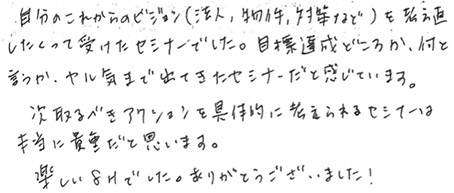 自分のこれからのビジョン(法人,物件,対策など)を考え直
したくって受けたセミナーでした。目標達成どころか、何と
言うか、ヤル気まで出てきたセミナーだと感じています。
次取るべきアクションを具体的に考えられるセミナーは
本当に貴重だと思います。
楽しい8Hでした。ありがとうございました!